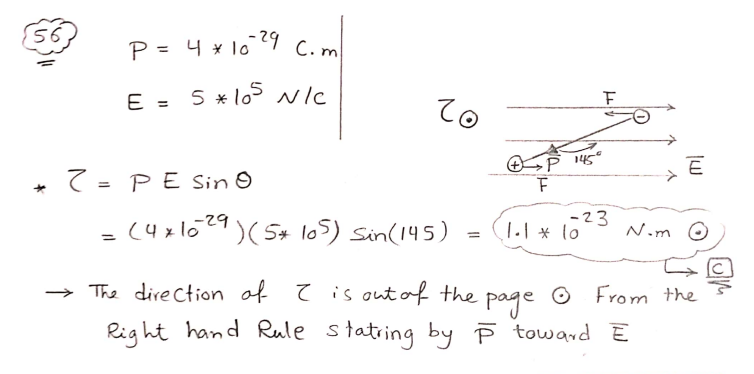 56
P = 4 * 10^-29 C.m
E = 5 * 10^5 N/C
τ ⊙
F
−
P̅ 145°
+
E̅
F
* τ = P E Sin θ
= (4 * 10^-29)(5 * 10^5) Sin(145) = 1.1 * 10^-23 N.m ⊙
C
→ The direction of τ is out of the page ⊙ From the
Right hand Rule statring by P̅ toward E̅